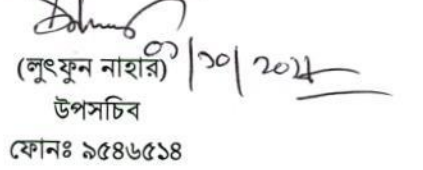 (লুৎফুন নাহার) ০১/১০/২০২৪
উপসচিব
ফোনঃ ৯৫৪৬৫১৪